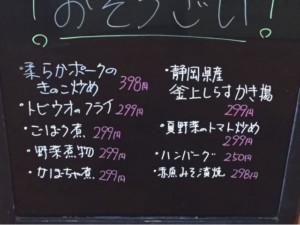 ！おそうざい！
・柔らかポークの
きのこ炒め 398円
・トビウオのフライ 299円
・ごぼう煮 299円
・野菜煮物 299円
・かぼちゃ煮 299円
・静岡県産
釜上しらすかき揚
299円
・夏野菜のトマト炒め
299円
・ハンバーグ 250円
・赤魚みそ漬焼 298円